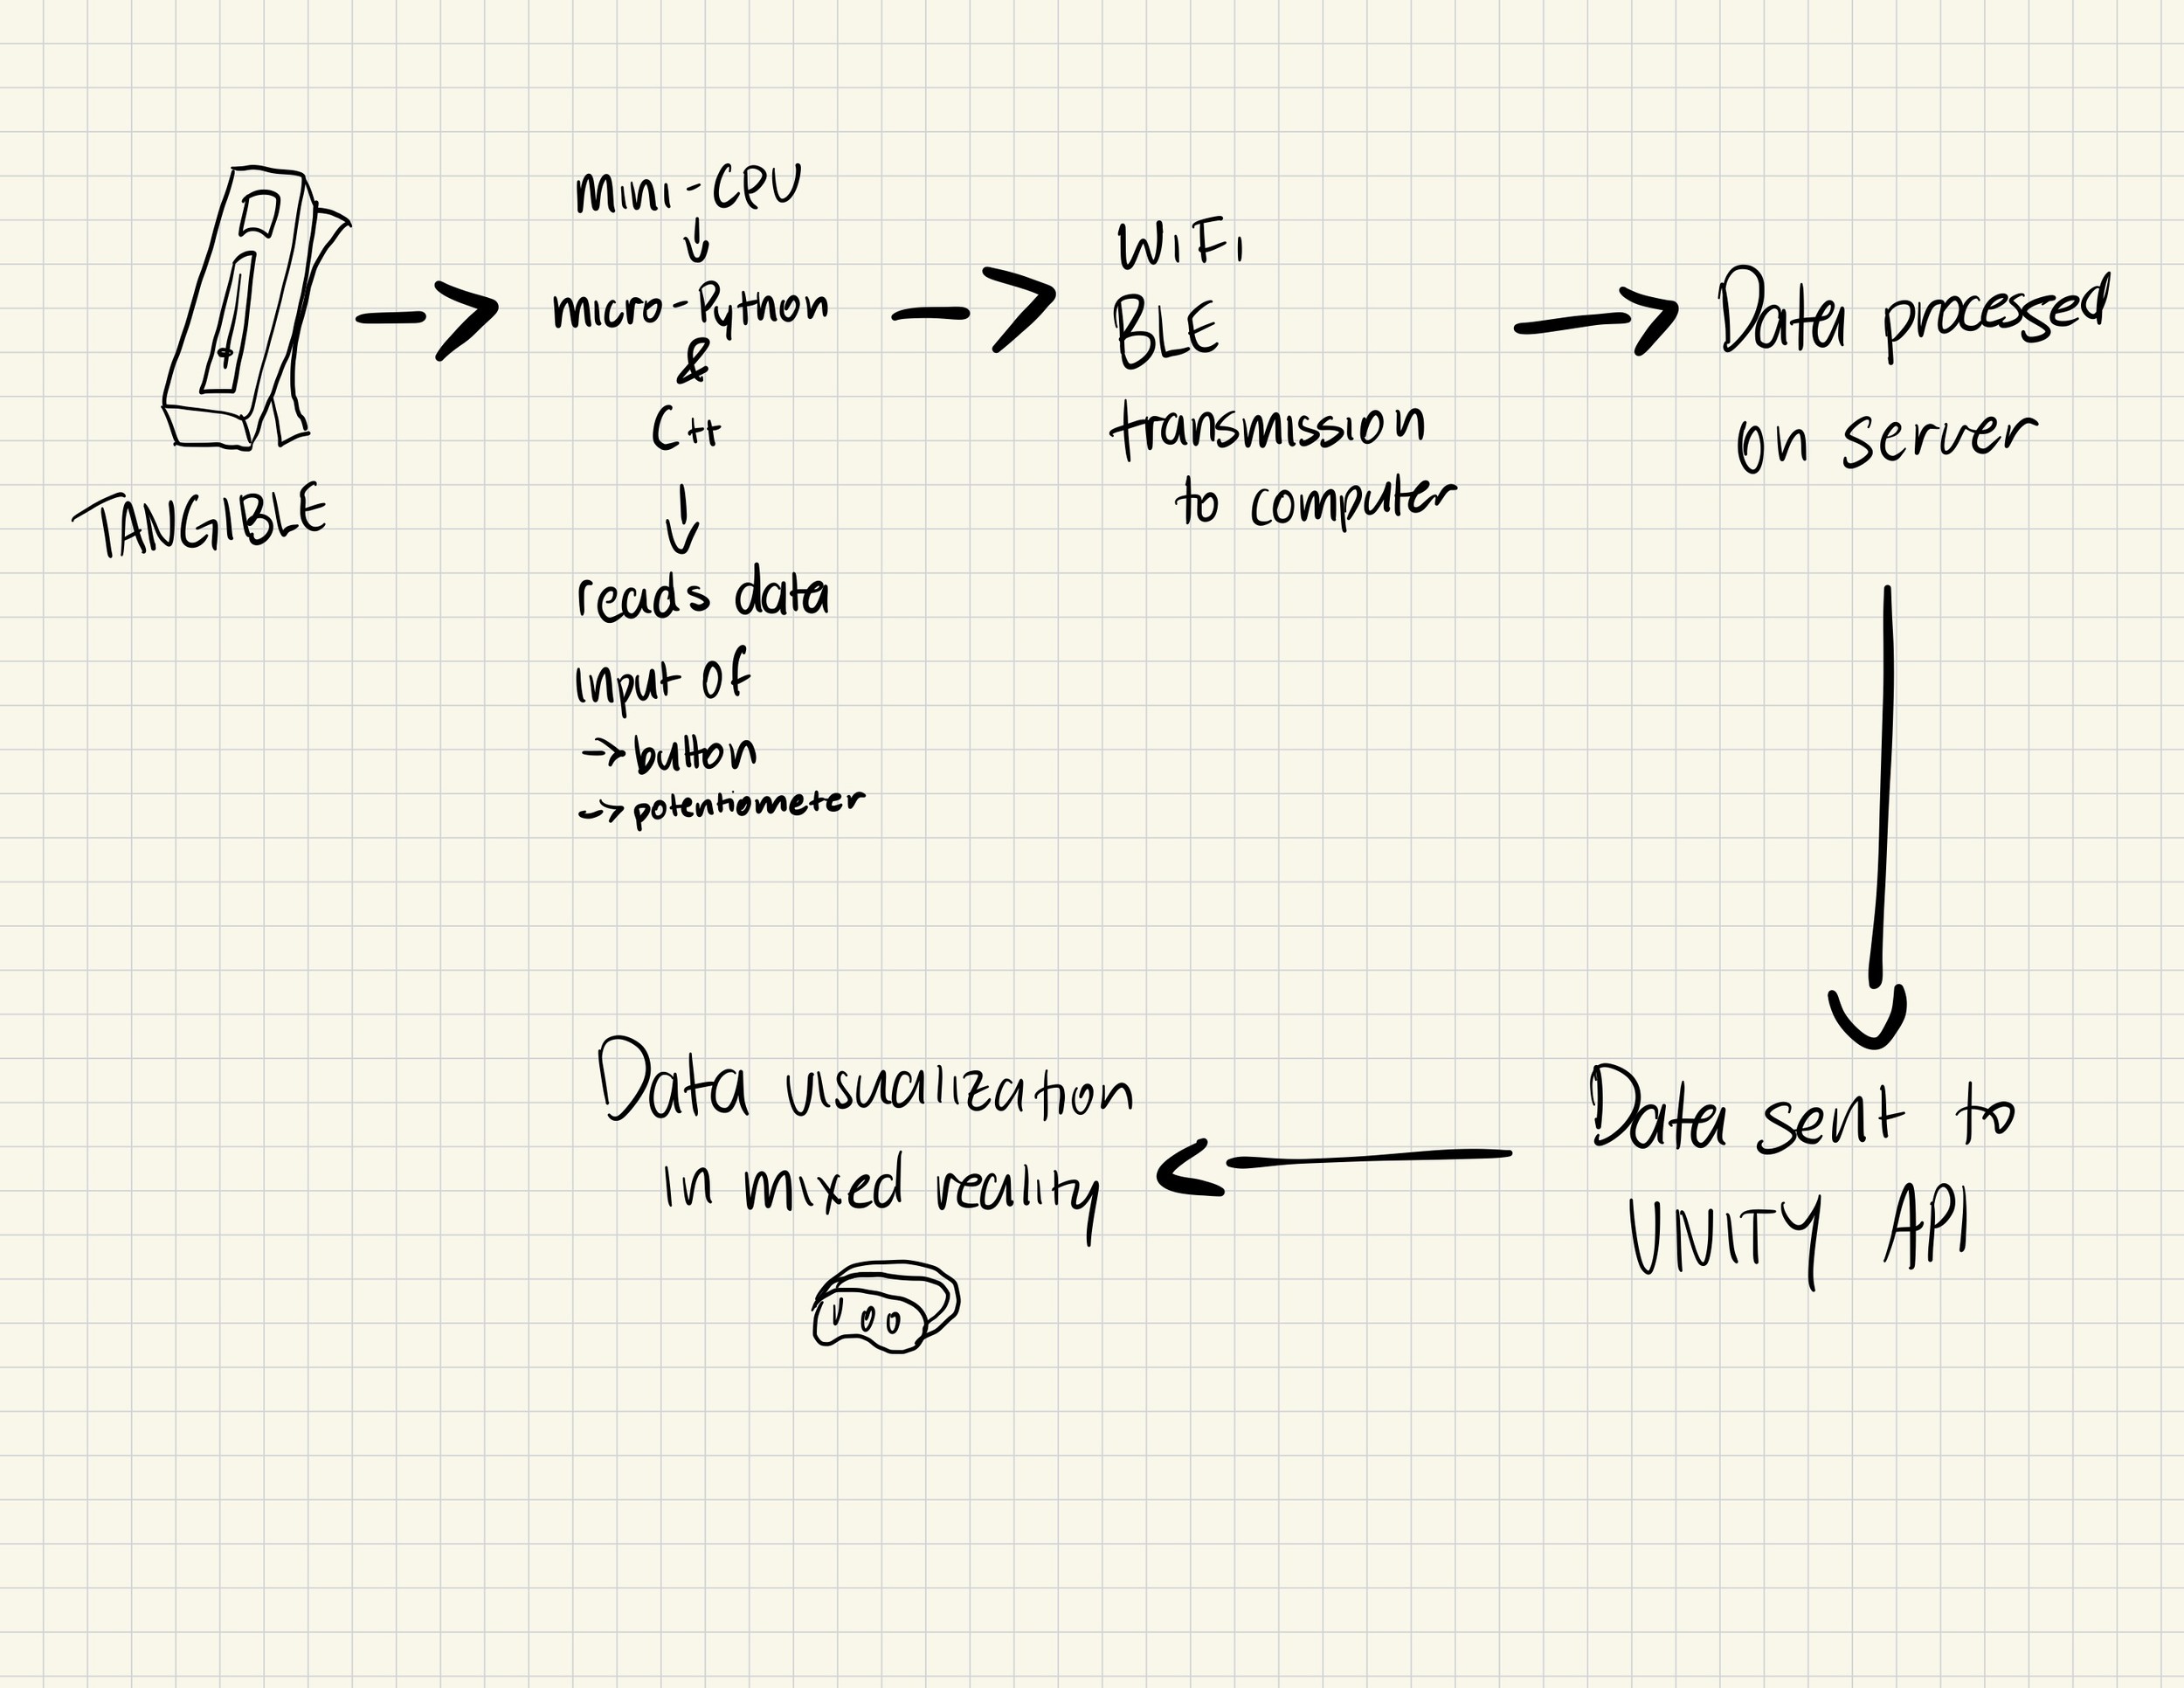 TANGIBLE
mini-CPU
↓
micro-Python
&
C++
↓
reads data
input of
→ button
→ potentiometer
WiFi
BLE
transmission
to computer
Data processed
on server
Data sent to
UNITY API
Data visualization
in mixed reality